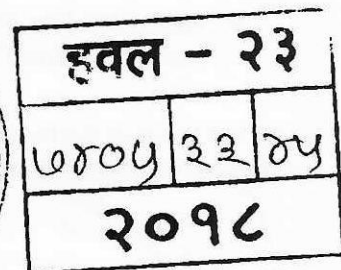 हवल - २३
७४०५ ३३ ४५
२०१८